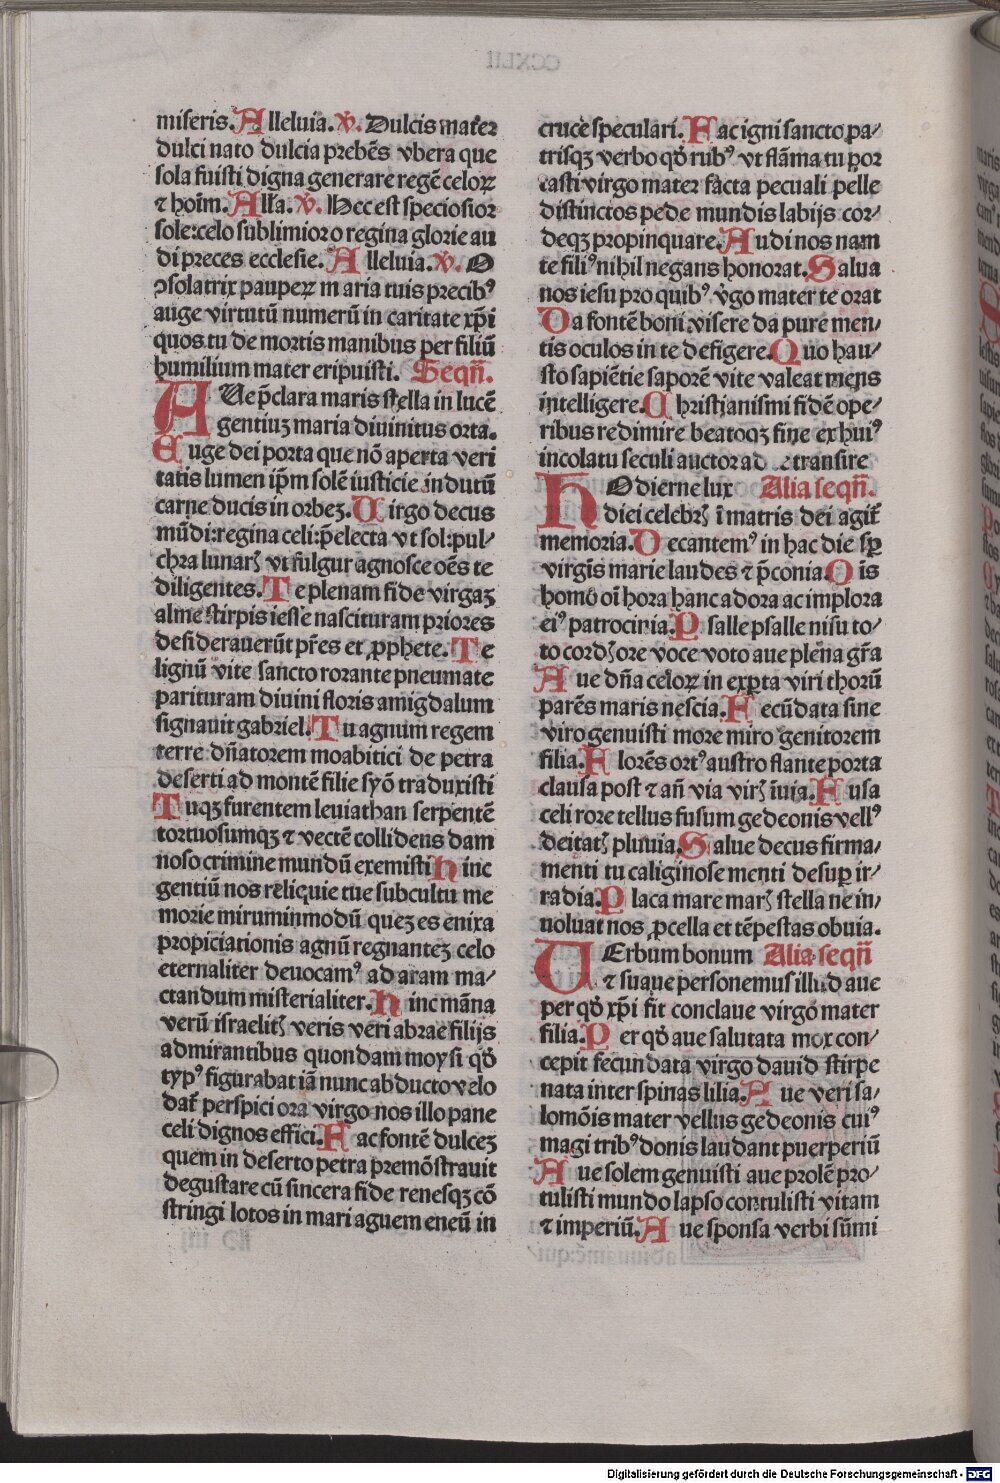 miseris. Alleluia. ℣. Dulcis mater
dulci nato dulcia prebẽs vbera que
sola fuisti digna generare regẽ celoꝝ
⁊ hoīm. Alľa. ℣. Hec est speciosior
sole: celo sublimior o regina glorie au
di preces ecclesie. Alleluia. ℣. O
ꝯsolatrix pauperꝝ maria tuis precibꝰ
auge virtutū numerū in caritate xp̄i
quos tu de mortis manibus per filiū
humilium mater eripuisti. Seqñ.
AUe p̄clara maris stella in lucē
gentiuꝫ maria diuinitus orta.
Euge dei porta que nō aperta veri
tatis lumen ip̄m solē iusticie indutū
carne ducis in orbeꝫ. Uirgo decus
mūdi: regina celi: p̄electa vt sol: pul⸗
chra lunarꝭ vt fulgur agnosce oēs te
diligentes. Te plenam fide virgaꝫ
alme stirpis iesse nascituram priores
desiderauerūt pr̄es et ꝓphete. Te
lignū vite sancto rorante pneumate
parituram diuini floris amigdalum
signauit gabriel. Tu agnum regem
terre dn̄atorem moabitici de petra
deserti ad montē filie syō traduxisti
Tuqꝫ furentem leuiathan serpentē
tortuosumqꝫ ⁊ vectē collidens dam
noso crimine mundū exemisti Hinc
gentiū nos reliquie tue sub cultu me
morie mirum in modū queꝫ es enixa
propiciationis agnū regnanteꝫ celo
eternaliter deuocamꝰ ad aram ma⸗
ctandum misterialiter. Hinc māna
verū israelitꝭ veris veri abrae filijs
admirantibus quondam moysi qð
typꝰ figurabat iā nunc abducto velo
dat̃ perspici ora virgo nos illo pane
celi dignos effici. Fac fontē dulceꝫ
quem in deserto petra premōstrauit
degustare cū sincera fide renesqꝫ cō
stringi lotos in mari aguem eneū in
cruce speculari. Fac igni sancto pa⸗
trisqꝫ verbo qð rubꝰ vt flāma tu por
tasti virgo mater facta pecuali pelle
distinctos pede mundis labijs cor⸗
deqꝫ propinquare. Audi nos nam
te filiꝰ nihil negans honorat. Salua
nos iesu pro quibꝰ v̓go mater te orat
Da fontē boni visere da pure men⸗
tis oculos in te defigere. Quo hau⸗
sto sapiētie saporē vite valeat mens
intelligere. Christianismi fidē ope⸗
ribus redimire beatoqꝫ fine ex huiꝰ
incolatu seculi auctor ad te transire
HOdierne lux Alia seqñ.
diei celebrꝭ ī matris dei agit̃
memoria. Decantemꝰ in hac die sꝑ
virgīs marie laudes ⁊ p̄conia. Oīs
homō oī hora hanc adora ac implora
eiꝰ patrocinia. Psalle psalle nisu to⸗
to cordꝭ ore voce voto aue plena gr̄a
Aue dn̄a celoꝝ inexꝑta viri thorū
parēs maris nescia. Fecūdata sine
viro genuisti more miro genitorem
filia. Florēs ortꝰ austro flante porta
clausa post ⁊ an̄ via virꝭ īuia. Fusa
celi rore tellus fusum gedeonis vellꝰ
deitatꝭ pluuia. Salue decus firma⸗
menti tu caliginose menti desuꝑ ir⸗
radia. Placa mare marꝭ stella ne in⸗
uoluat nos ꝓcella et tēpestas obuia.
UErbum bonum Alia seqñ
⁊ suaue personemus illud aue
per qð xp̄i fit conclaue virgo mater
filia. Per qð aue salutata mox con⸗
cepit fecundata virgo dauid stirpe
nata inter spinas lilia. Aue veri sa⸗
lomōis mater vellus gedeonis cuiꝰ
magi tribꝰ donis laudant puerperiū
Aue solem genuisti aue prolē pro⸗
tulisti mundo lapso contulisti vitam
⁊ imperiū. Aue sponsa verbi sūmi
Digitalisierung gefördert durch die Deutsche Forschungsgemeinschaft - DFG